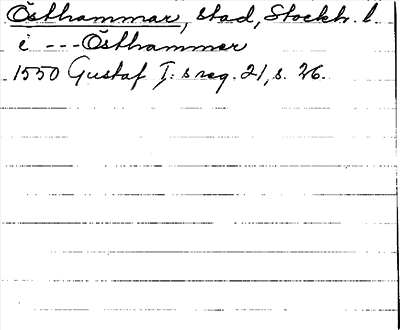 Östhammar, stad, Stockh. l.
i --- Östhammer
1550 Gustaf I:s reg. 21, s. 26.